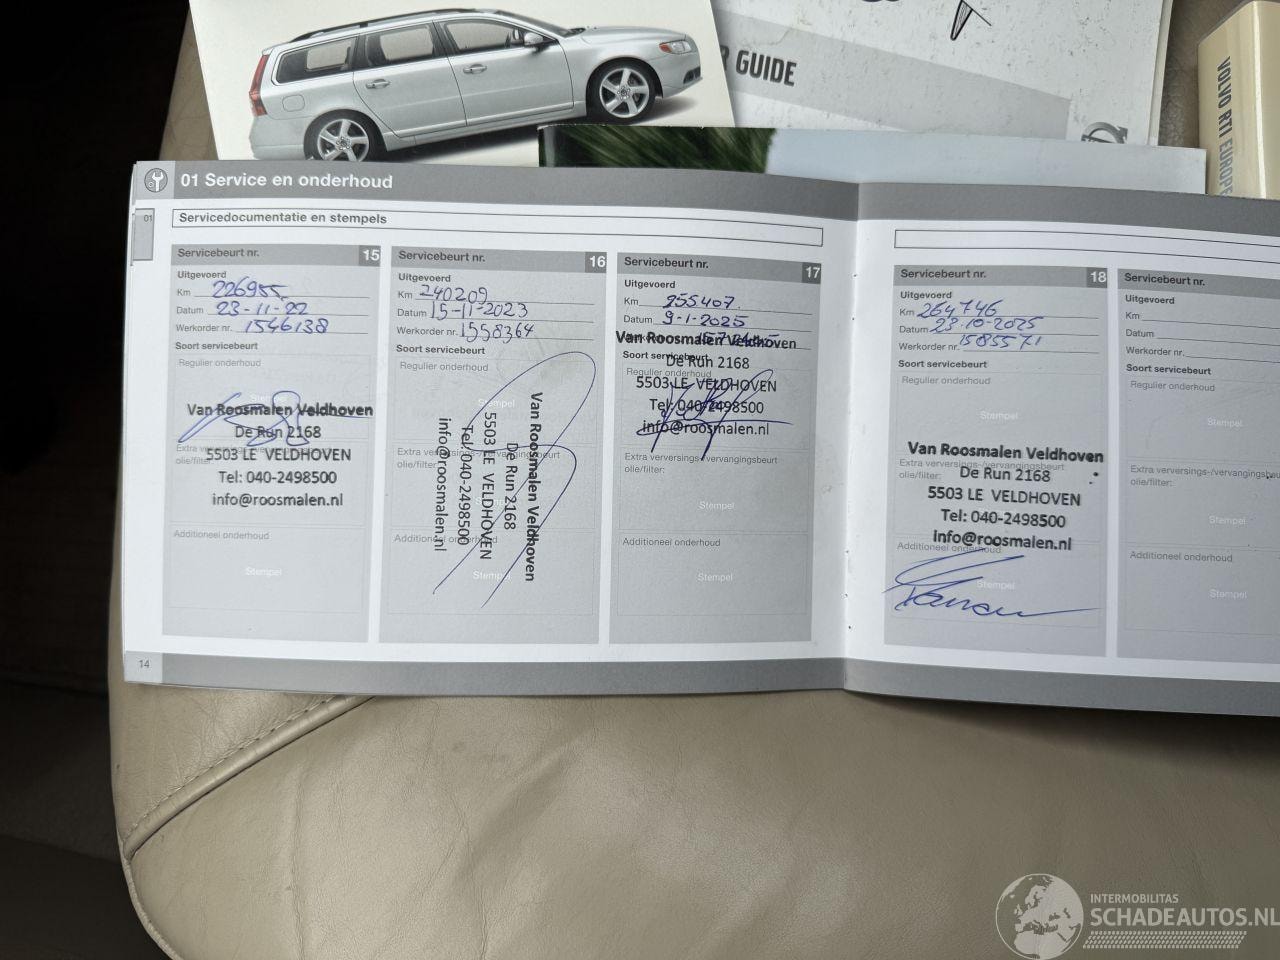 R GUIDE
VOLVO RTI EUROPE
01 Service en onderhoud
01
Servicedocumentatie en stempels
Servicebeurt nr. 15
Uitgevoerd
Km 226955
Datum 23-11-22
Werkorder nr. 1546138
Soort servicebeurt
Regulier onderhoud
Stempel
Van Roosmalen Veldhoven
De Run 2168
Extra verversings-/vervangingsbeurt
olie/filter:
5503 LE VELDHOVEN
Tel: 040-2498500
info@roosmalen.nl
Additioneel onderhoud
Stempel
Servicebeurt nr. 16
Uitgevoerd
Km 240209
Datum 15-11-2023
Werkorder nr. 1558364
Soort servicebeurt
Regulier onderhoud
Stempel
Van Roosmalen Veldhoven
De Run 2168
5503 LE VELDHOVEN
Tel: 040-2498500
info@roosmalen.nl
Extra verversings-/vervangingsbeurt
olie/filter:
Additioneel onderhoud
Stempel
Servicebeurt nr. 17
Uitgevoerd
Km 255407
Datum 9-1-2025
Van Roosmalen Veldhoven
Soort servicebeurt
De Run 2168
Regulier onderhoud
5503 LE VELDHOVEN
Tel: 040-2498500
info@roosmalen.nl
Extra verversings-/vervangingsbeurt
olie/filter:
Stempel
Additioneel onderhoud
Stempel
Servicebeurt nr. 18
Uitgevoerd
Km 264746
Datum 23-10-2025
Werkorder nr. 1585571
Soort servicebeurt
Regulier onderhoud
Stempel
Van Roosmalen Veldhoven
Extra verversings-/vervangingsbeurt
olie/filter:
De Run 2168
5503 LE VELDHOVEN
Tel: 040-2498500
info@roosmalen.nl
Additioneel onderhoud
Stempel
Servicebeurt nr.
Uitgevoerd
Km
Datum
Werkorder nr.
Soort servicebeurt
Regulier onderhoud
Stempel
Extra verversings-/vervangingsbeurt
olie/filter:
Stempel
Additioneel onderhoud
Stempel
14
INTERMOBILITAS
SCHADEAUTOS.NL